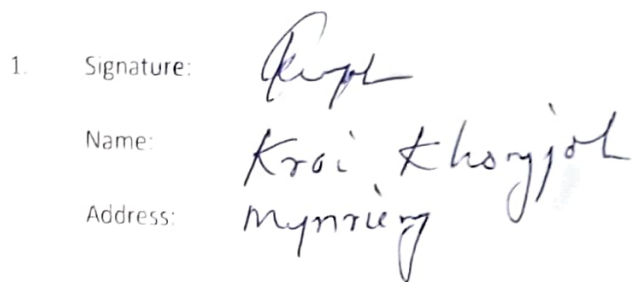 1. Signature:
Name: Kroi Khongjoh
Address: Mynrieng